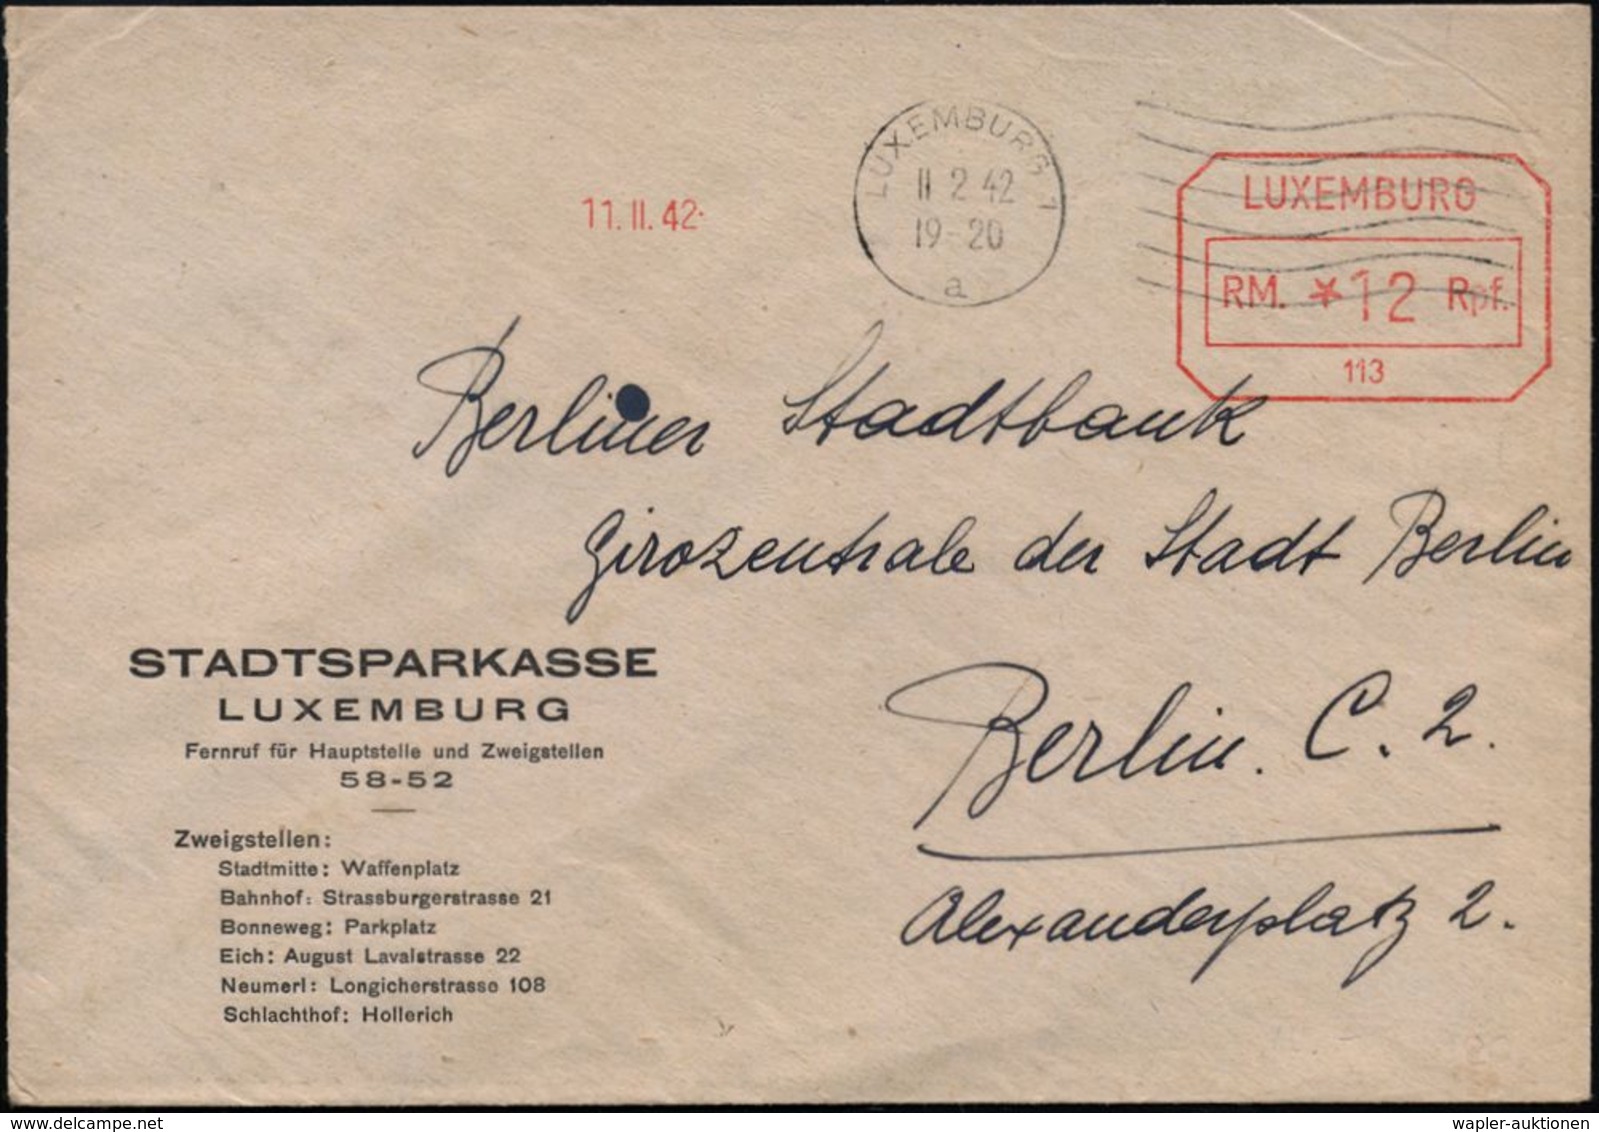 LUXEMBURG 1
11 2 42
19-20
a
11.II.42.
LUXEMBURG
RM. *12 Rpf.
113
Berliner Stadtbank
Girozentrale der Stadt Berlin
Berlin. C. 2.
Alexanderplatz 2.
STADTSPARKASSE
LUXEMBURG
Fernruf für Hauptstelle und Zweigstellen
58-52
Zweigstellen:
Stadtmitte: Waffenplatz
Bahnhof: Strassburgerstrasse 21
Bonneweg: Parkplatz
Eich: August Lavalstrasse 22
Neumerl: Longicherstrasse 108
Schlachthof: Hollerich
www.delcampe.net
wapler-auktionen